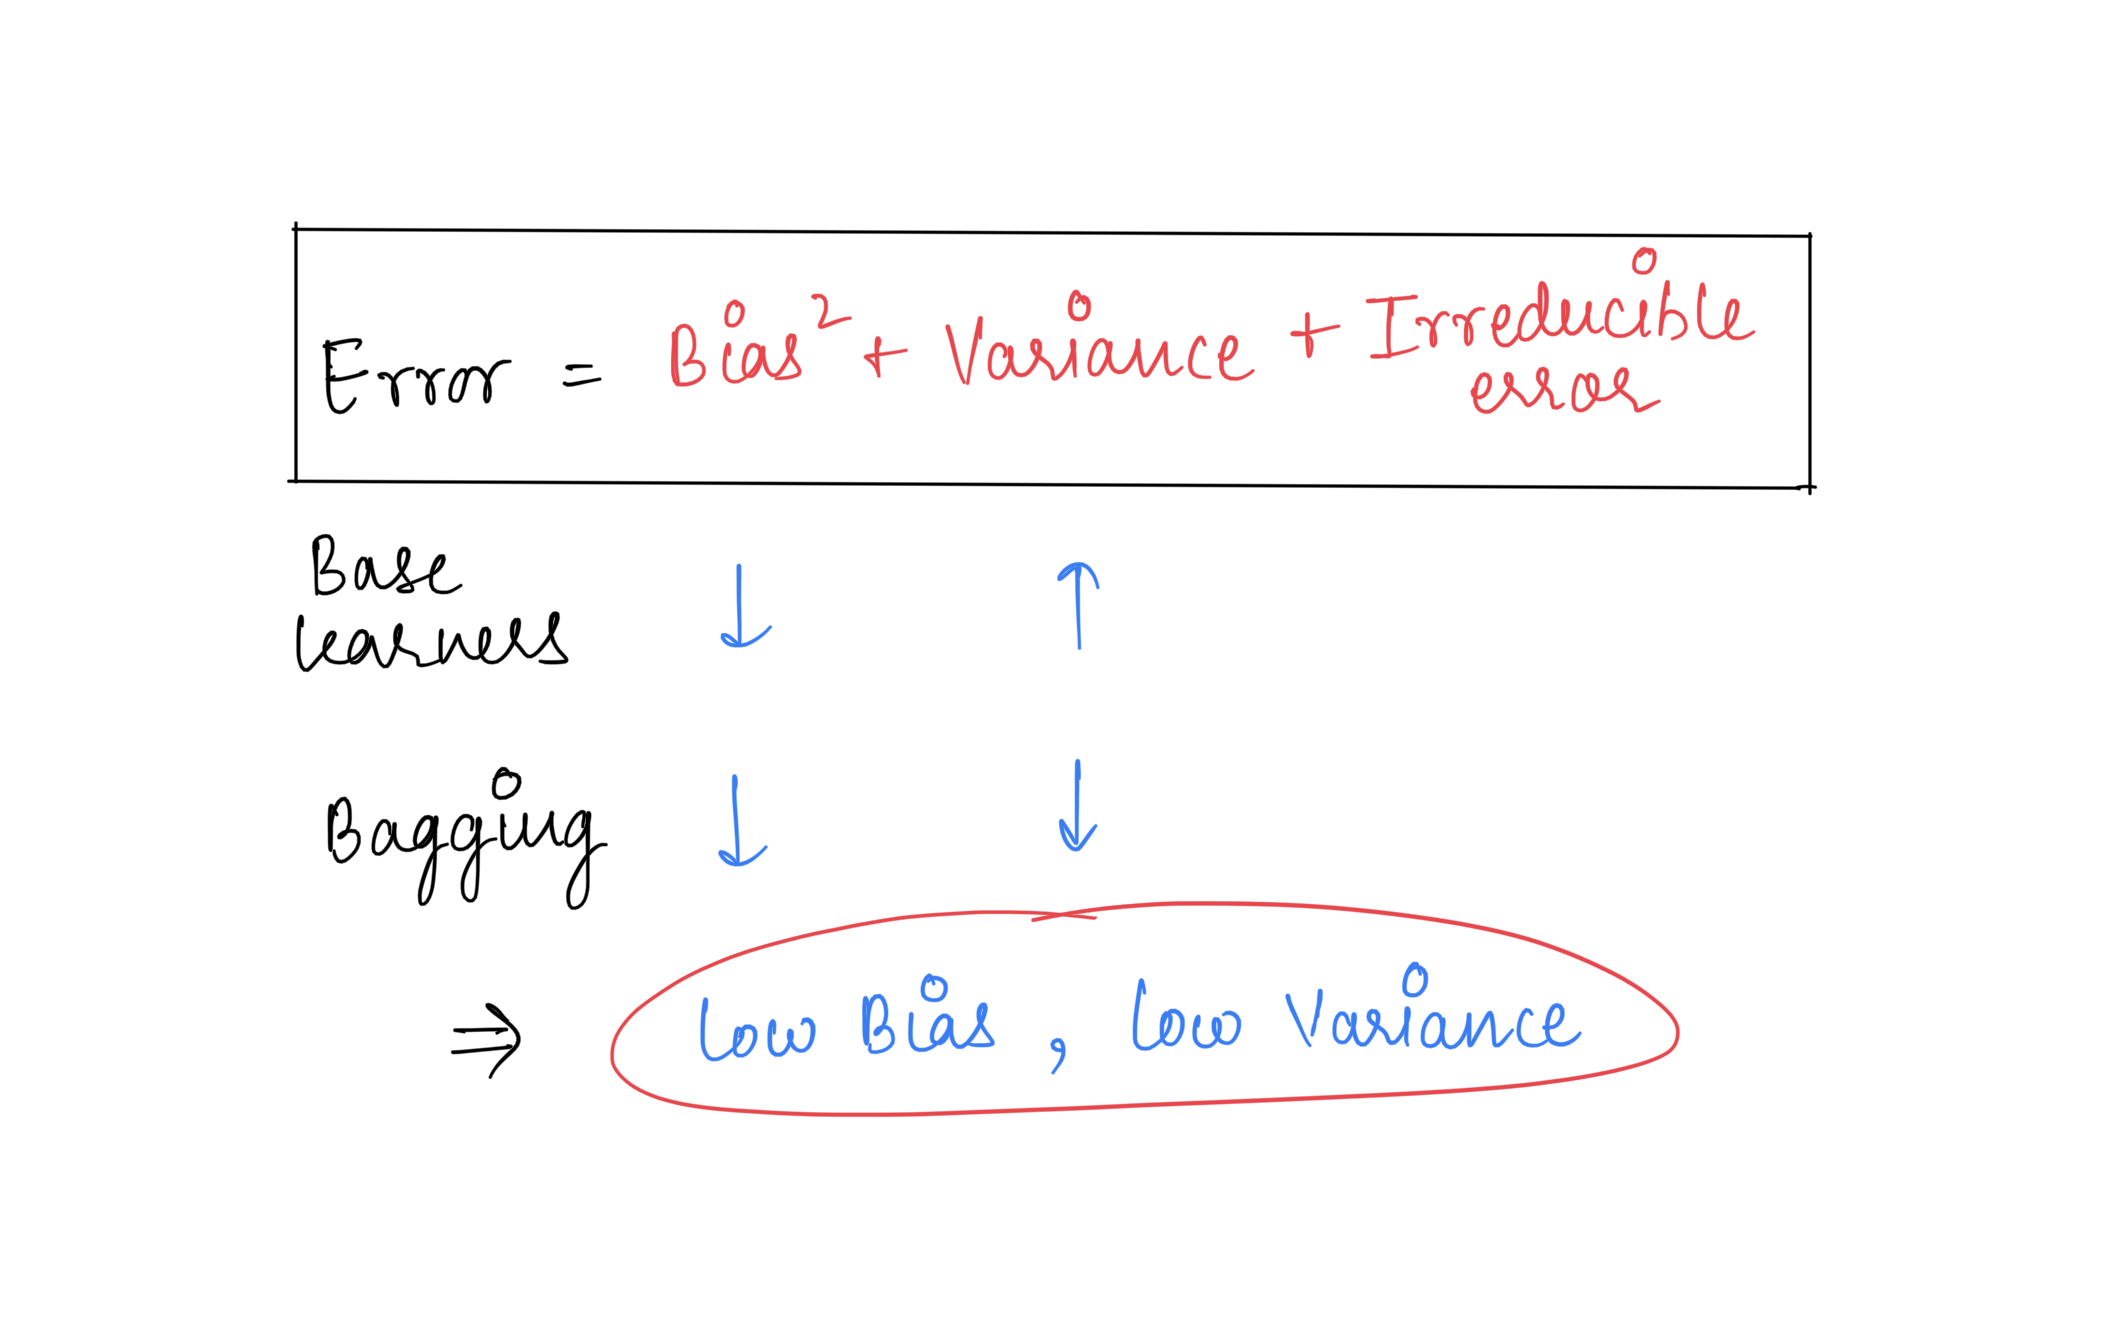 Error = Bias² + Variance + Irreducible
error
Base ↓ ↑
learners
Bagging ↓ ↓
⇒ Low Bias, Low Variance